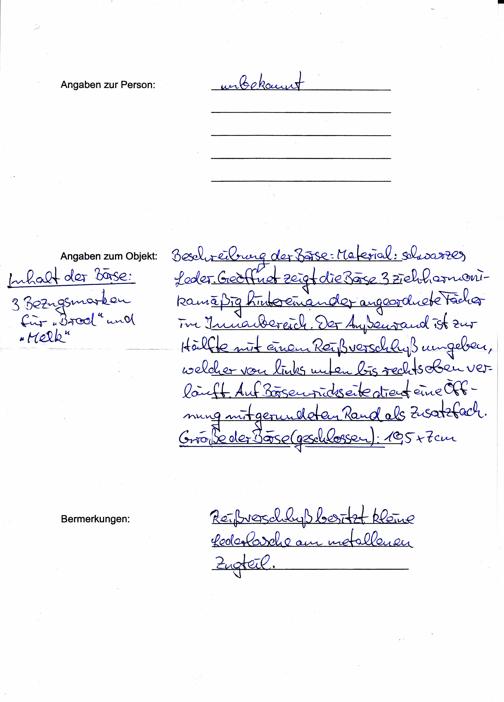 Angaben zur Person: unbekannt
Angaben zum Objekt: Beschreibung der Börse: Material: schwarzes
Leder. Geöffnet zeigt die Börse 3 ziehharmoni-
kamäßig hintereinander angeordnete Fächer
im Innenbereich. Der Außenrand ist zur
Hälfte mit einem Reißverschluß umgeben,
welcher von links unten bis rechts oben ver-
läuft. Auf Börsenrückseite dient eine Öff-
nung mit gerundeten Rand als Zusatzfach.
Größe der Börse (geschlossen): 10,5 x 7cm
Inhalt der Börse:
3 Bezugsmarken
für „Brood" und
„Melk"
Bermerkungen: Reißverschluß besitzt kleine
Lederlasche am metallenen
Zugteil.